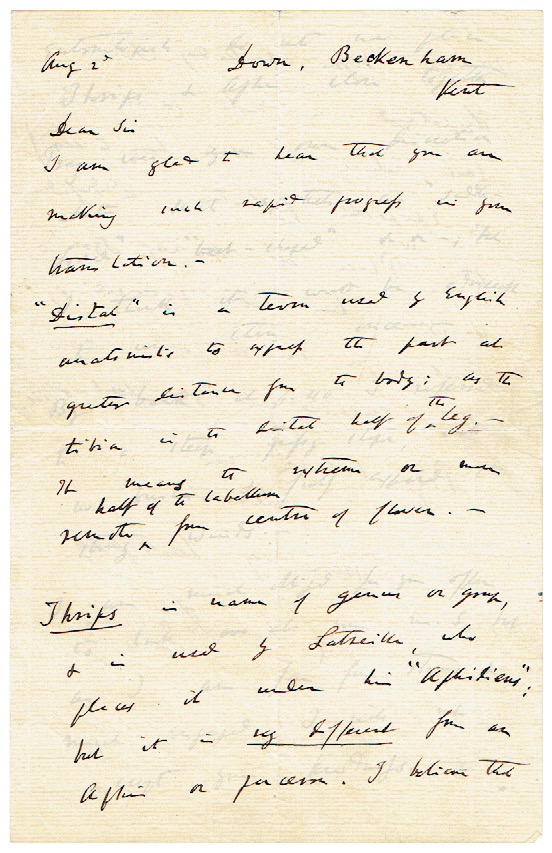 Aug 2d Down, Beckenham
Kent
Dear Sir
I am glad to hear that you are
making such rapid progress in your
translation. —
"Distal" is a term used by English
anatomists to express the part at
greatest distance from the body; as the
tibia is the distal half of the leg. —
It means the extreme or more
half of the labellum
remote ^ from centre of flower. —
Thrips is name of genus or group,
& is used by Latreille, who
places it under his "Aphidiens";
but it is very different from an
Aphis or puceron. I believe that